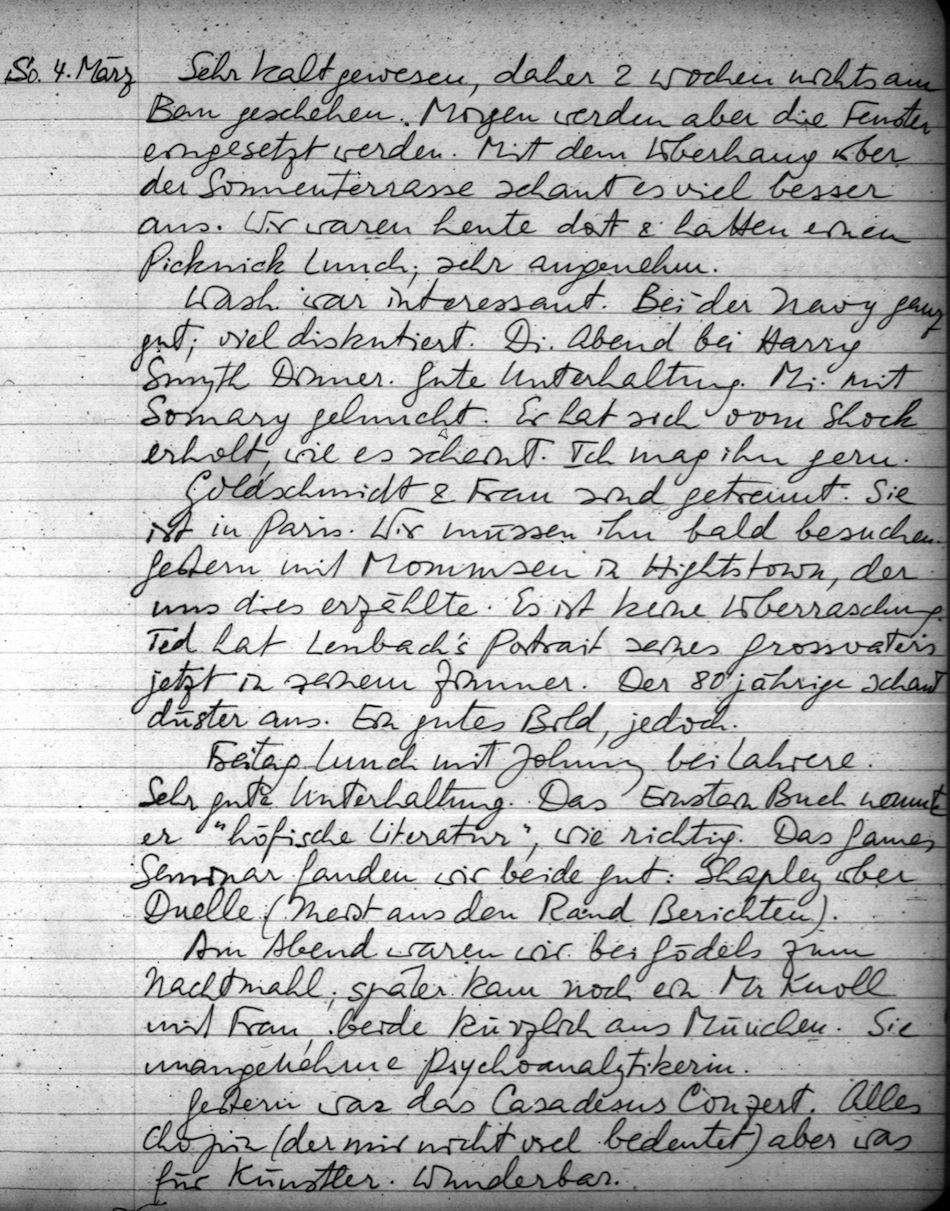 So. 4. März Sehr kalt gewesen, daher 2 Wochen nichts am
Bau geschehen. Morgen werden aber die Fenster
eingesetzt werden. Mit dem Überhang über
der Sonnenterrasse schaut es viel besser
aus. Wir waren heute dort & hatten einen
Picknick Lunch; sehr angenehm.
Wash. war interessant. Bei der Navy ganz
gut; viel diskutiert. Di. Abend bei Harry
Smyth Dinner. Gute Unterhaltung. Mi. mit
Somary geluncht. Er hat sich vom Shock
erholt, wie es scheint. Ich mag ihn gern.
Goldschmidt & Frau sind getrennt. Sie
ist in Paris. Wir müssen ihn bald besuchen.
Gestern mit Mommsen in Hightstown, der
uns dies erzählte. Es ist keine Überraschung.
Ted hat Lenbach's Portrait seines Grossvaters
jetzt in seinem Zimmer. Der 80 jährige schaut
düster aus. Ein gutes Bild, jedoch.
Freitag Lunch mit Johnny bei Lahiere.
Sehr gute Unterhaltung. Das Einstein Buch nennt
er "höfische Literatur", wie richtig. Das Games
Seminar fanden wir beide gut: Shapley über
Duelle (meist aus den Rand Berichten).
Am Abend waren wir bei Gödels zum
Nachtmahl; später kam noch ein Mr Knoll
mit Frau, beide kürzlich aus München. Sie
unangenehme Psychoanalytikerin.
Gestern war das Casadesus Conzert. Alles
Chopin (der mir nicht viel bedeutet) aber was
für Künstler. Wunderbar.